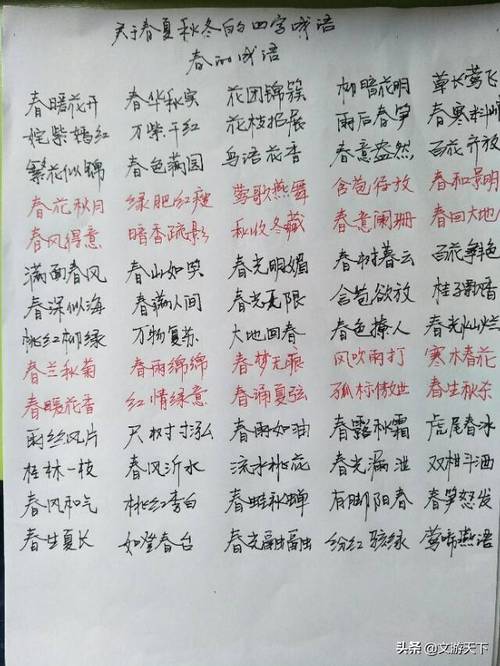 关于春夏秋冬的四字成语
春的成语
春暖花开 春华秋实 花团锦簇 柳暗花明 草长莺飞
姹紫嫣红 万紫千红 花枝招展 雨后春笋 春寒料峭
繁花似锦 春色满园 鸟语花香 春意盎然 百花齐放
春花秋月 绿肥红瘦 莺歌燕舞 含苞待放 春和景明
春风得意 暗香疏影 秋收冬藏 春意阑珊 春回大地
满面春风 春山如笑 春光明媚 春树暮云 百花争艳
春深似海 春满人间 春光无限 含苞欲放 桂子飘香
桃红柳绿 万物复苏 大地回春 春色撩人 春光灿烂
春兰秋菊 春雨绵绵 春梦无痕 风吹雨打 寒木春花
春暖花香 红情绿意 春诵夏弦 孤标傲世 春生秋杀
雨丝风片 尺树寸泓 春雨如油 春露秋霜 虎尾春冰
桂林一枝 春风沂水 流水桃花 春光漏泄 双柑斗酒
春风和气 桃红李白 春蛙秋蝉 有脚阳春 春笋怒发
春生夏长 如登春台 春光融融 纷红骇绿 莺啼燕语
头条 @文游天下